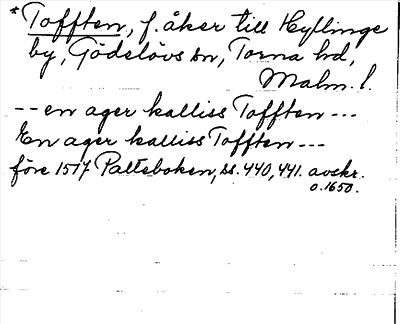 *Tofften, f. åker till Hyllinge
by, Gödelövs sn, Torna hd,
Malm. l.
-- en ager kalliss Tofften ---
En ager kalliss Tofften ---
före 1517 Palteboken, ss. 440, 441. avskr.
o. 1650.